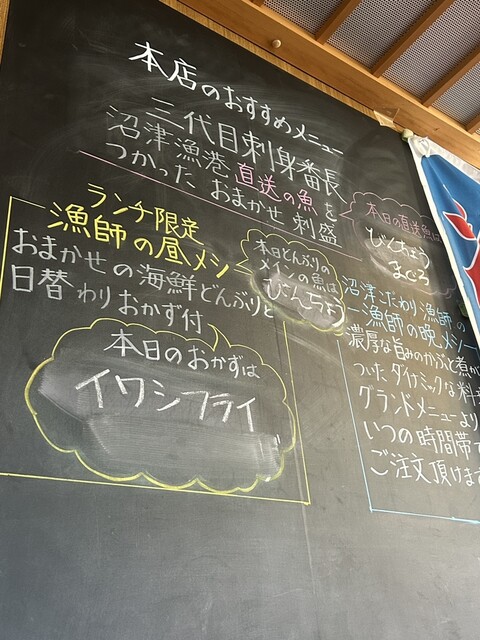 本店のおすすめメニュー
三代目刺身番長
沼津漁港直送の魚を
つかった おまかせ 刺盛
本日の直送魚は
びんちょう
まぐろ
ランチ限定
漁師の昼メシ
おまかせの海鮮どんぶりと
日替わりおかず付
本日どんぶりの
メインの魚は
びんちょう
本日のおかずは
イワシフライ
沼津こだわり漁師の
ー漁師の晩メシー
濃厚な旨みのかぶと煮が
ついたダイナミックな料
グランドメニューより
いつの時間帯で
ご注文頂けます